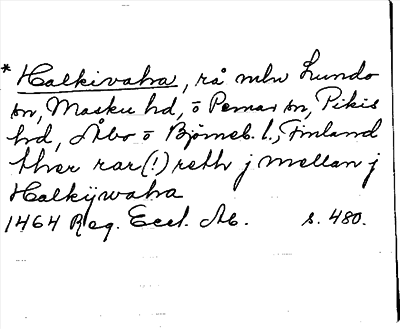 * Halkivaha, rå mln Lundo
sn, Masku hd, o Pemar sn, Pikis
hd, Åbo o Björneb. l., Finland
ther rar(!) reth j mellan j
Halkijwaha
1464 Reg. Eccl. Ab. s. 480.